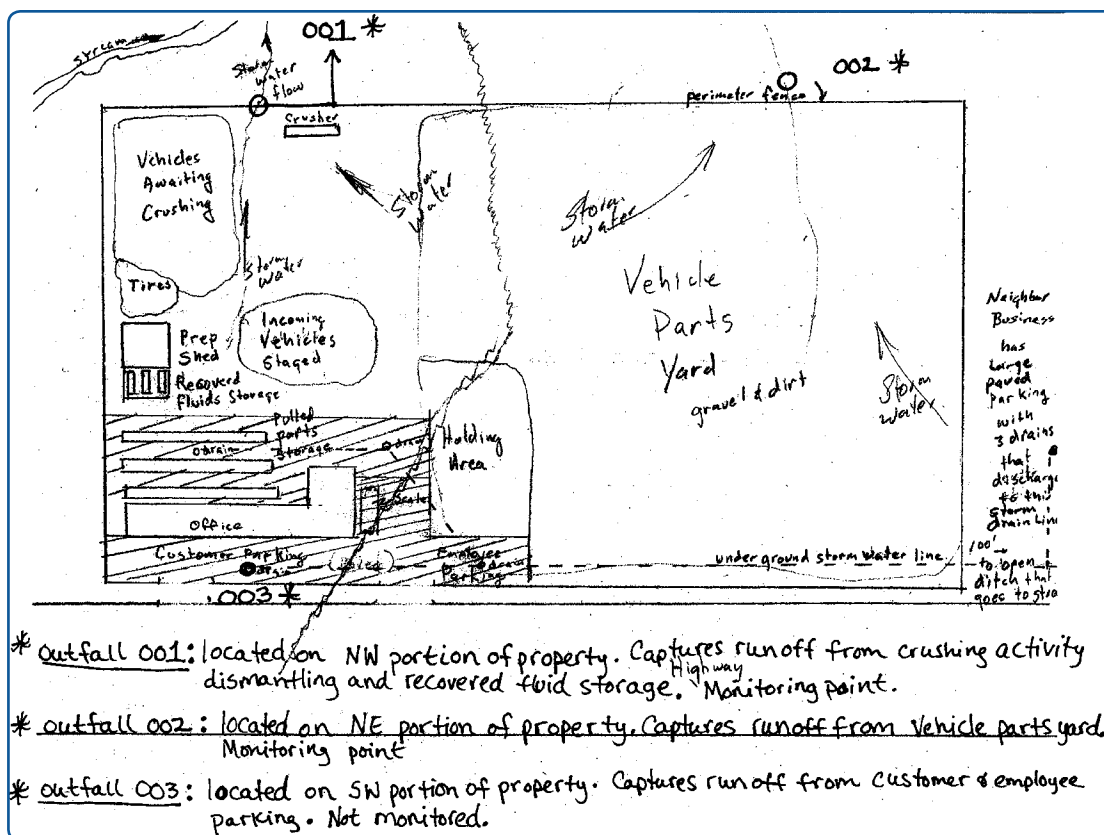 stream
001 *
Storm
water
flow
002 *
perimeter fence
Crusher
Vehicles
Awaiting
Crushing
Storm
Water
Storm
Water
Storm
Water
Tires
Incoming
Vehicles
Staged
Prep
Shed
Recovered
Fluids Storage
Vehicle
Parts
Yard
gravel & dirt
Storm
Water
Neighbor
Business
has
large
paved
parking
with
3 drains
that
discharge
to this
storm
drain line
100'
to open
ditch that
goes to
Pulled
parts
storage
drain
drain
Holding
Area
Scale
Office
Customer Parking
drain
(paved)
Employee
Parking
drain
underground storm water line
.003 *
* outfall 001: located on NW portion of property. Captures runoff from crushing activity
dismantling and recovered fluid storage. Monitoring point.
Highway
* outfall 002: located on NE portion of property. Captures runoff from Vehicle parts yard.
Monitoring point
* outfall 003: located on SW portion of property. Captures runoff from customer & employee
parking. Not monitored.